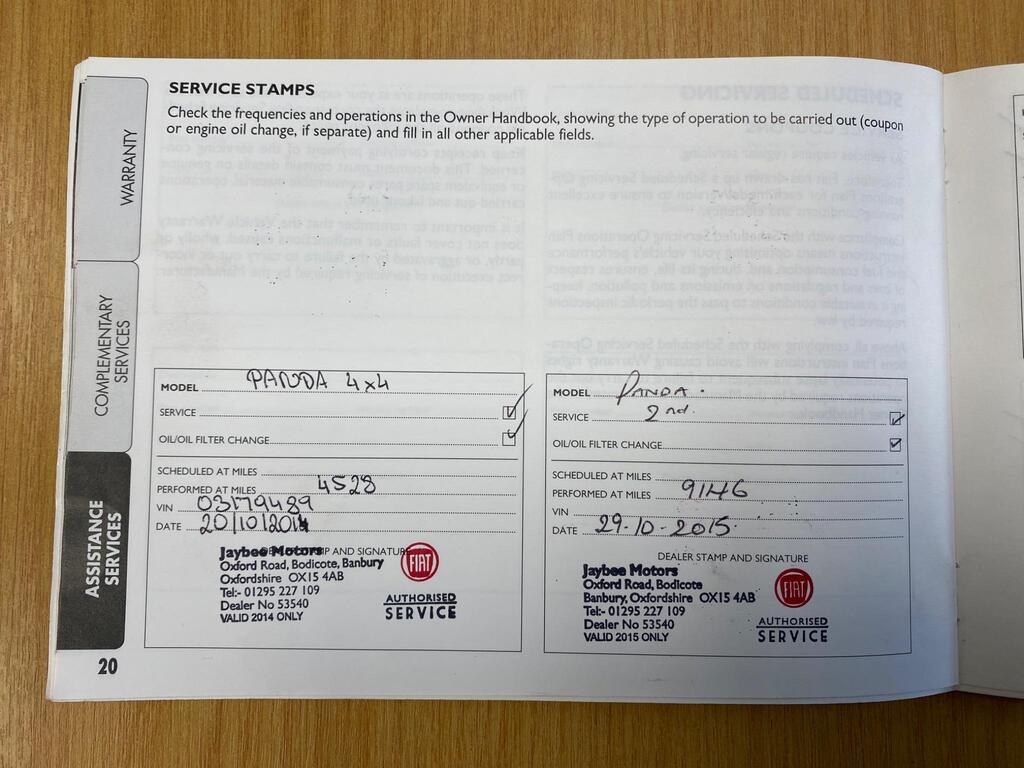 SERVICE STAMPS
Check the frequencies and operations in the Owner Handbook, showing the type of operation to be carried out (coupon
or engine oil change, if separate) and fill in all other applicable fields.
WARRANTY
COMPLEMENTARY
SERVICES
ASSISTANCE
SERVICES
MODEL PANDA 4x4
SERVICE
OIL/OIL FILTER CHANGE
SCHEDULED AT MILES
PERFORMED AT MILES 4528
VIN 03179489
DATE 20/10/2014
DEALER STAMP AND SIGNATURE
Jaybee Motors
Oxford Road, Bodicote, Banbury
Oxfordshire OX15 4AB
Tel:- 01295 227 109
Dealer No 53540
VALID 2014 ONLY
FIAT
AUTHORISED
SERVICE
MODEL PANDA.
SERVICE 2nd.
OIL/OIL FILTER CHANGE
SCHEDULED AT MILES
PERFORMED AT MILES 9146
VIN
DATE 29-10-2015.
DEALER STAMP AND SIGNATURE
Jaybee Motors
Oxford Road, Bodicote
Banbury, Oxfordshire OX15 4AB
Tel:- 01295 227 109
Dealer No 53540
VALID 2015 ONLY
FIAT
AUTHORISED
SERVICE
20